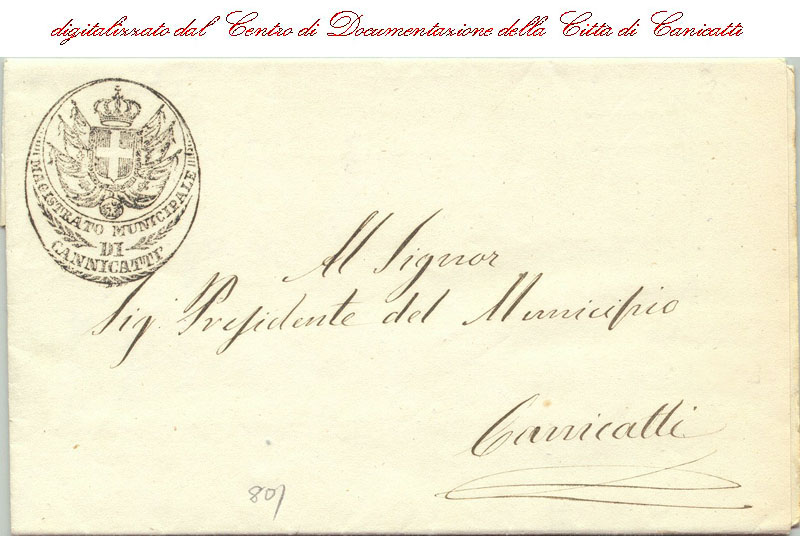 digitalizzato dal Centro di Documentazione della Città di Canicattì
MAGISTRATO MUNICIPALE
DI
CANNICATTI'
Al Signor
Sig.r Presidente del Municipio
Canicatti
80/